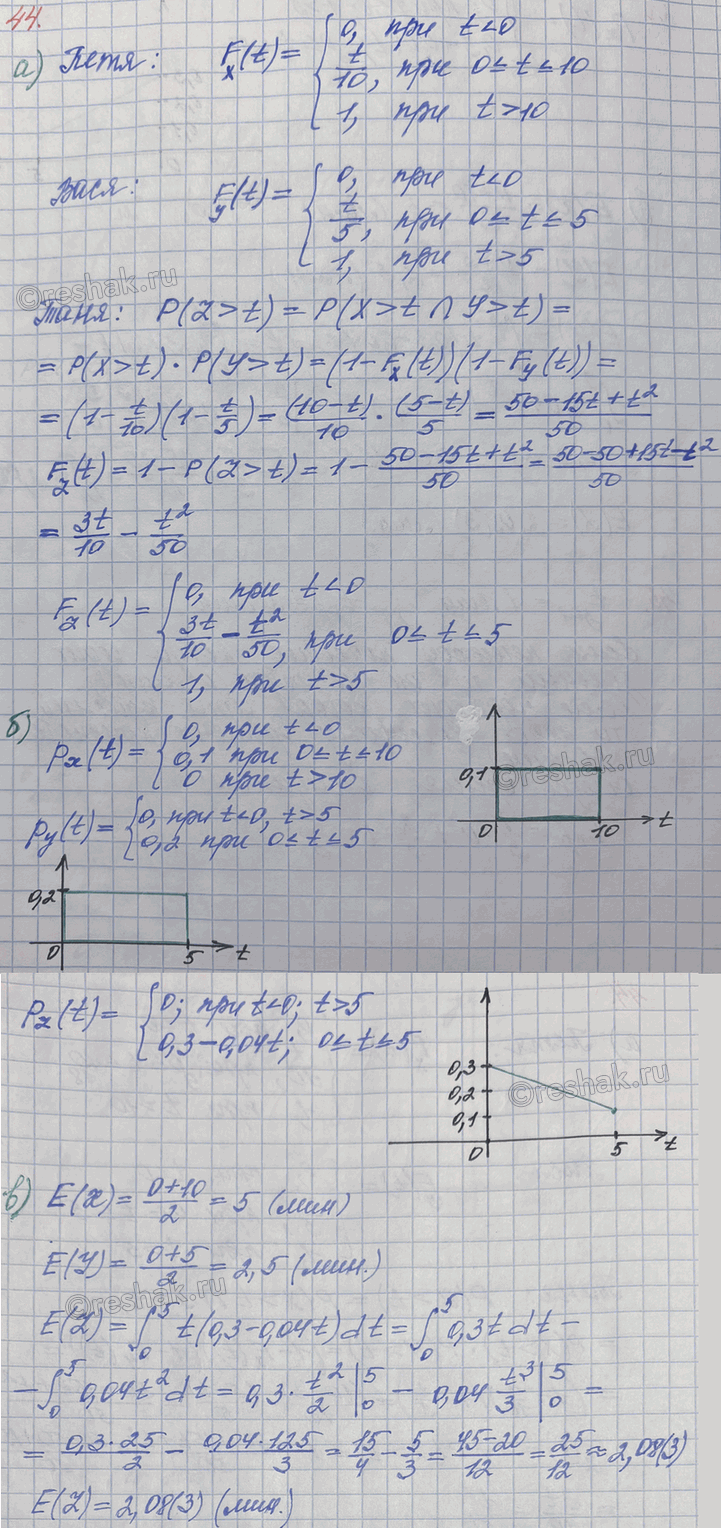 44.
а) Петя: F_x(t) = { 0, при t<0
t/10, при 0≤t≤10
1, при t>10
Вася: F_y(t) = { 0, при t<0
t/5, при 0≤t≤5
1, при t>5
Таня: P(Z>t) = P(X>t ∩ Y>t) =
= P(X>t) · P(Y>t) = (1-F_x(t))(1-F_y(t)) =
= (1-t/10)(1-t/5) = (10-t)/10 · (5-t)/5 = (50-15t+t²)/50
F_z(t) = 1-P(Z>t) = 1-(50-15t+t²)/50 = (50-50+15t-t²)/50
= 3t/10 - t²/50
F_z(t) = { 0, при t<0
3t/10 - t²/50, при 0≤t≤5
1, при t>5
б) p_x(t) = { 0, при t<0
0,1 при 0≤t≤10
0 при t>10
0,1
0 10 t
p_y(t) = { 0, при t<0, t>5
0,2 при 0≤t≤5
0,2
0 5 t
p_z(t) = { 0; при t<0; t>5
0,3-0,04t; 0≤t≤5
0,3
0,2
0,1
0 5 t
в) E(X) = (0+10)/2 = 5 (мин)
E(Y) = (0+5)/2 = 2,5 (мин.)
E(Z) = ∫₀⁵ t(0,3-0,04t)dt = ∫₀⁵ 0,3t dt -
- ∫₀⁵ 0,04t² dt = 0,3 · t²/2 |₀⁵ - 0,04 t³/3 |₀⁵ =
= (0,3·25)/2 - (0,04·125)/3 = 15/4 - 5/3 = (45-20)/12 = 25/12 ≈ 2,08(3)
E(Z) = 2,08(3) (мин.)
©reshak.ru
©reshak.ru
©reshak.ru
©reshak.ru